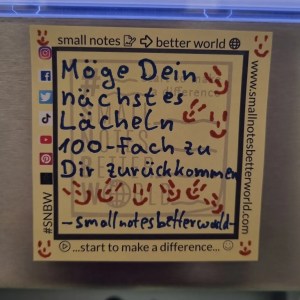 small notes better world
Möge Dein
nächstes
Lächeln
100-fach zu
Dir zurückkommen
-smallnotesbetterworld-
...start to make a difference...
#SNBW
www.smallnotesbetterworld.com